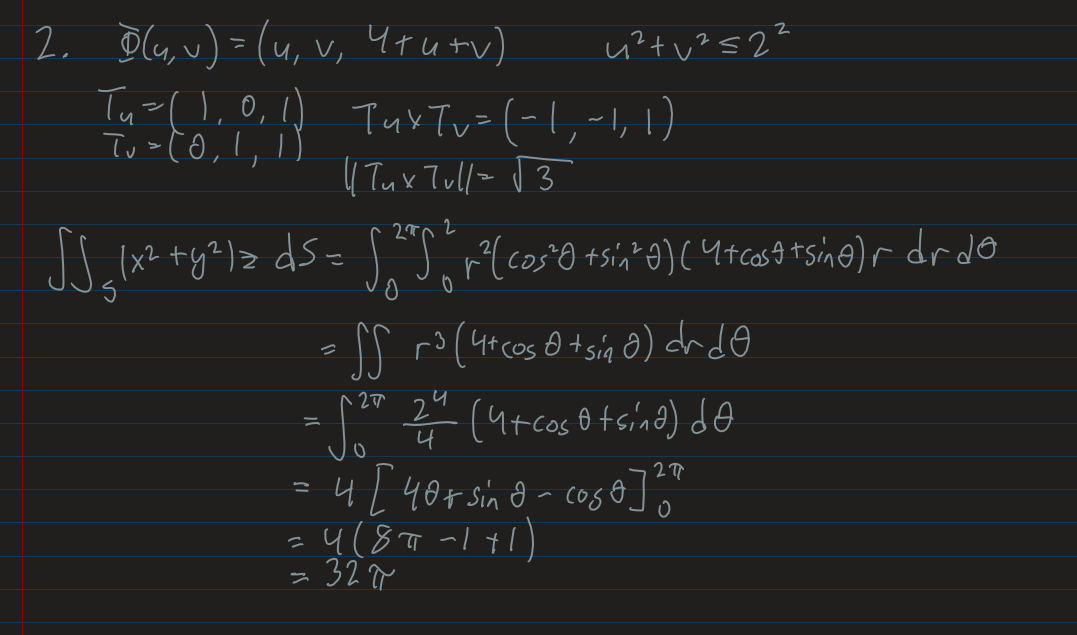 2. Φ(u,v) = (u, v, 4+u+v) u²+v² ≤ 2²
Tu = (1, 0, 1) Tu×Tv = (-1, -1, 1)
Tv = (0, 1, 1)
||Tu×Tv|| = √3
∬_S (x²+y²)z dS = ∫_0^{2π} ∫_0^2 r²(cos²θ+sin²θ)(4+cosθ+sinθ) r dr dθ
= ∬ r³(4+cosθ+sinθ) dr dθ
= ∫_0^{2π} 2⁴/4 (4+cosθ+sinθ) dθ
= 4[4θ+sinθ-cosθ]_0^{2π}
= 4(8π-1+1)
= 32π